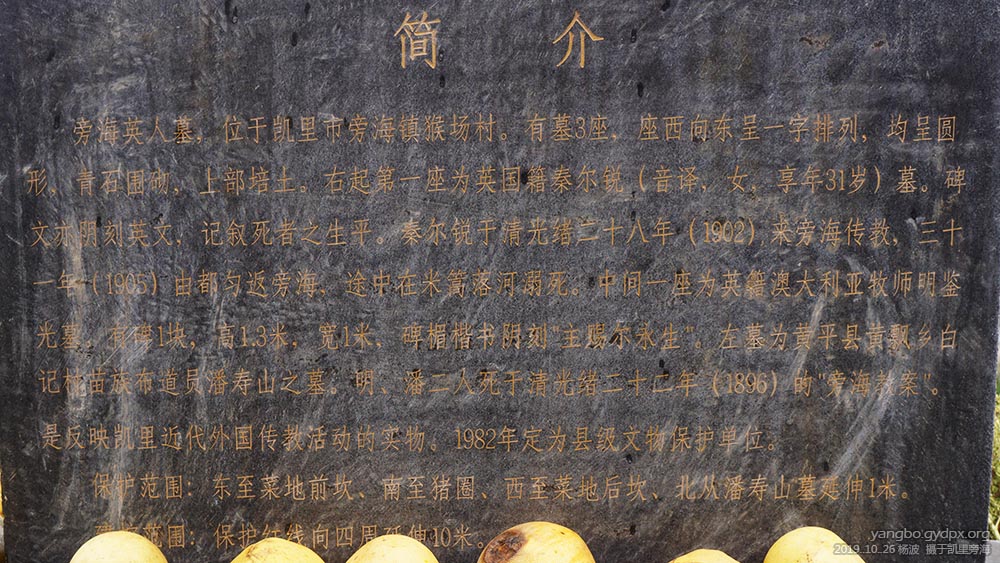 简介
旁海英人墓，位于凯里市旁海镇猴场村。有墓3座，座西向东呈一字排列，均呈圆
形，青石围砌，上部培土。右起第一座为英国籍秦尔锐（音译，女，享年31岁）墓。碑
文亦阴刻英文，记叙死者之生平。秦尔锐于清光绪二十八年（1902）来旁海传教，三十
一年（1905）由都匀返旁海，途中在米篙落河溺死。中间一座为英籍澳大利亚牧师明鉴
光墓，有碑1块，高1.3米，宽1米，碑楣楷书阴刻"主赐尔永生"。左墓为黄平县黄飘乡白
记村苗族布道员潘寿山之墓。明、潘二人死于清光绪二十二年（1896）的"旁海教案"。
是反映凯里近代外国传教活动的实物。1982年定为县级文物保护单位。
保护范围：东至菜地前坎、南至猪圈、西至菜地后坎、北从潘寿山墓延伸1米。
范围：保护红线向四周延伸10米。
yangbo.gydpx.org
2019.10.26 杨波 摄于凯里旁海